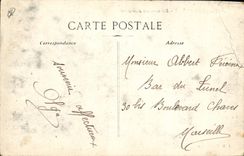 CARTE POSTALE
Correspondance
Adresse
souvenir affectueux
Olga
Monsieur Albert
Bar du Tunel
30 bis Boulevard Chaves
Marseille